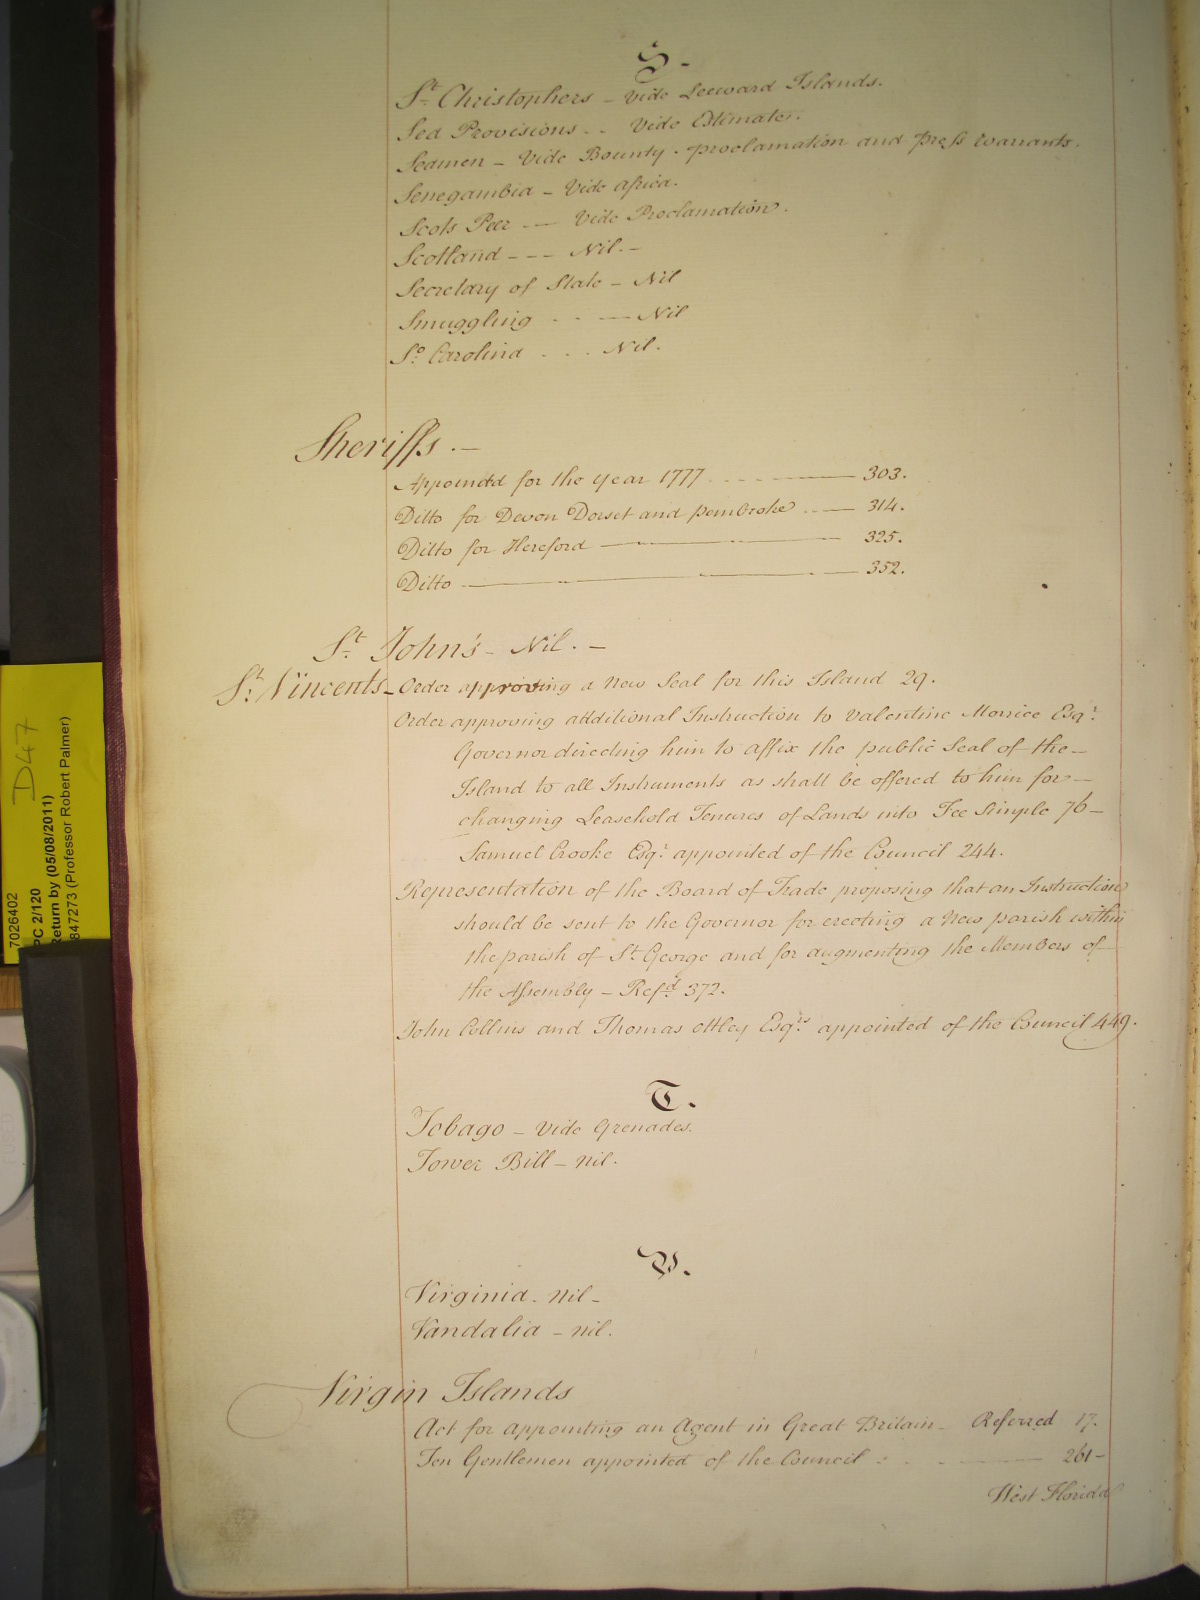 S.
St. Christophers - Vide Leeward Islands.
Sea Provisions - - Vide Estimates.
Seamen - Vide Bounty. Proclamation and Press Warrants.
Senegambia - Vide Africa.
Scots Peer --- Vide Proclamation.
Scotland --- Nil. -
Secretary of State - Nil
Smuggling - - — Nil
So. Carolina . . . Nil.
Sheriffs. -
Appointed for the year 1777 - - - - — 303.
Ditto for Devon Dorset and Pembroke - - — 314.
Ditto for Hereford — 325.
Ditto — 352.
St. John's - Nil. -
St. Vincents - Order approving a New Seal for this Island 29.
Order approving additional Instruction to Valentine Morrice Esqr.
Governor directing him to affix the public Seal of the -
Island to all Instruments as shall be offered to him for -
changing Leasehold Tenures of Lands into Fee Simple 76 -
Samuel Crooke Esqr. appointed of the Council 244.
Representation of the Board of Trade proposing that an Instruction
should be sent to the Governor for erecting a New parish within
the parish of St. George and for augmenting the Members of
the Assembly - Refd. 372.
John Collins and Thomas Ottley Esqrs. appointed of the Council 449.
T.
Tobago - Vide Grenades.
Tower Bill - nil.
V.
Virginia - nil -
Vandalia - nil.
Virgin Islands
Act for appointing an Agent in Great Britain - Referred 17.
Ten Gentlemen appointed of the Council : - — 261 -
West Florida
D47
7026402
PC 2/120
Return by (05/08/2011)
847273 (Professor Robert Palmer)